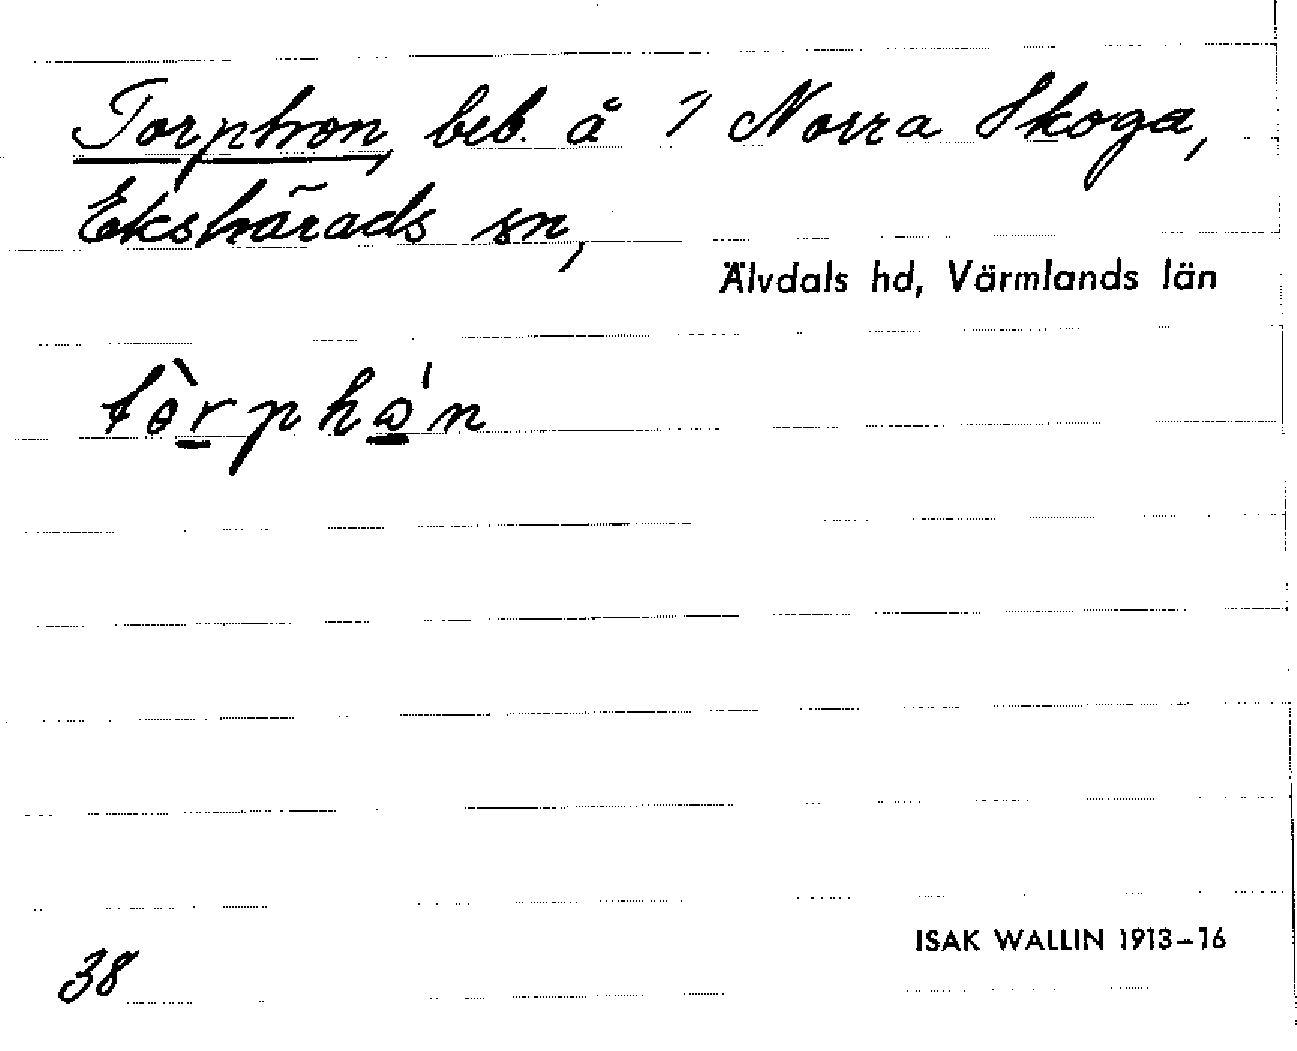 Torphon, beb. å 1 Norra Skoga,
Ekshärads sn,
Älvdals hd, Värmlands län
tɵ̀rphɷ́n
38
ISAK WALLIN 1913–16